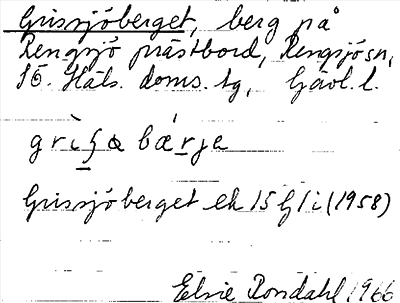 Grissjöberget, berg på
Rengsjö prästbord, Rengsjö sn,
Sö. Häls. doms. tg, Gävl. l.
Grissjöberget ek 15 G 1 i (1958)
Elsie Rondahl 1966